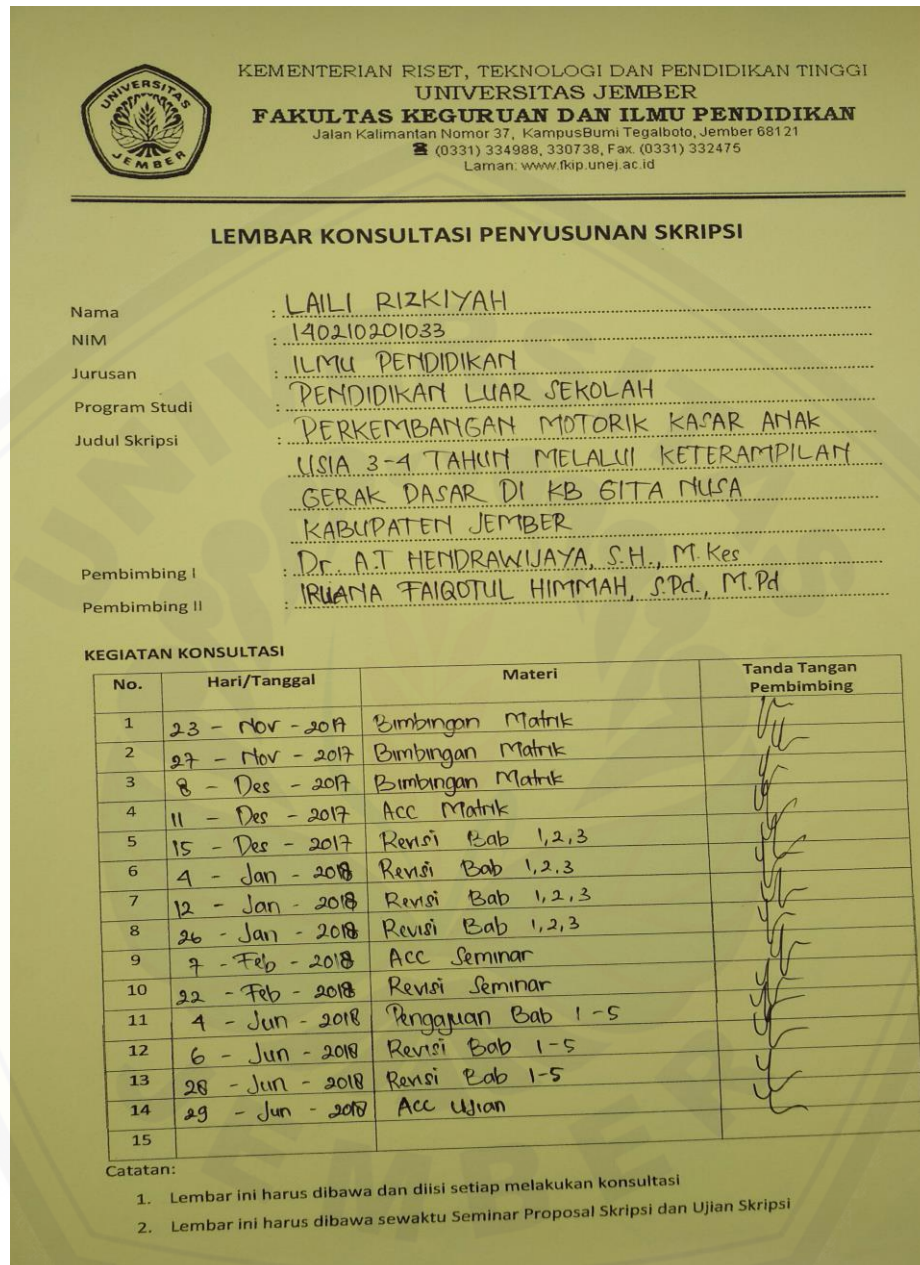 UNIVERSITAS JEMBER
KEMENTERIAN RISET, TEKNOLOGI DAN PENDIDIKAN TINGGI
UNIVERSITAS JEMBER
FAKULTAS KEGURUAN DAN ILMU PENDIDIKAN
Jalan Kalimantan Nomor 37, KampusBumi Tegalboto, Jember 68121
☎ (0331) 334988, 330738, Fax. (0331) 332475
Laman: www.fkip.unej.ac.id
LEMBAR KONSULTASI PENYUSUNAN SKRIPSI
Nama : LAILI RIZKIYAH
NIM : 140210201033
Jurusan : ILMU PENDIDIKAN
Program Studi : PENDIDIKAN LUAR SEKOLAH
Judul Skripsi : PERKEMBANGAN MOTORIK KASAR ANAK
USIA 3-4 TAHUN MELALUI KETERAMPILAN
GERAK DASAR DI KB GITA NUSA
KABUPATEN JEMBER
Pembimbing I : Dr. A.T HENDRAWIJAYA, S.H., M.Kes
Pembimbing II : FAIQOTUL HIMMAH, S.Pd., M.Pd
KEGIATAN KONSULTASI
No. Hari/Tanggal Materi Tanda Tangan Pembimbing
1 23 - Nov - 2017 Bimbingan Matrik
2 27 - Nov - 2017 Bimbingan Matrik
3 8 - Des - 2017 Bimbingan Matrik
4 11 - Des - 2017 Acc Matrik
5 15 - Des - 2017 Revisi Bab 1,2,3
6 4 - Jan - 2018 Revisi Bab 1,2,3
7 12 - Jan - 2018 Revisi Bab 1,2,3
8 26 - Jan - 2018 Revisi Bab 1,2,3
9 7 - Feb - 2018 Acc Seminar
10 22 - Feb - 2018 Revisi Seminar
11 4 - Jun - 2018 Pengajuan Bab 1-5
12 6 - Jun - 2018 Revisi Bab 1-5
13 28 - Jun - 2018 Revisi Bab 1-5
14 29 - Jun - 2018 Acc Ujian
15
Catatan:
1. Lembar ini harus dibawa dan diisi setiap melakukan konsultasi
2. Lembar ini harus dibawa sewaktu Seminar Proposal Skripsi dan Ujian Skripsi